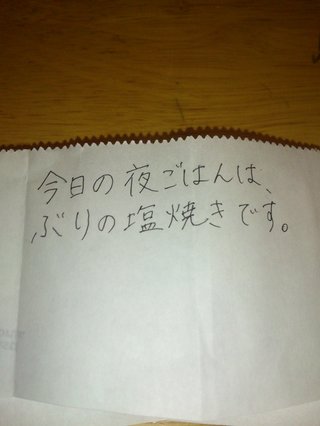 今日の夜ごはんは、
ぶりの塩焼きです。